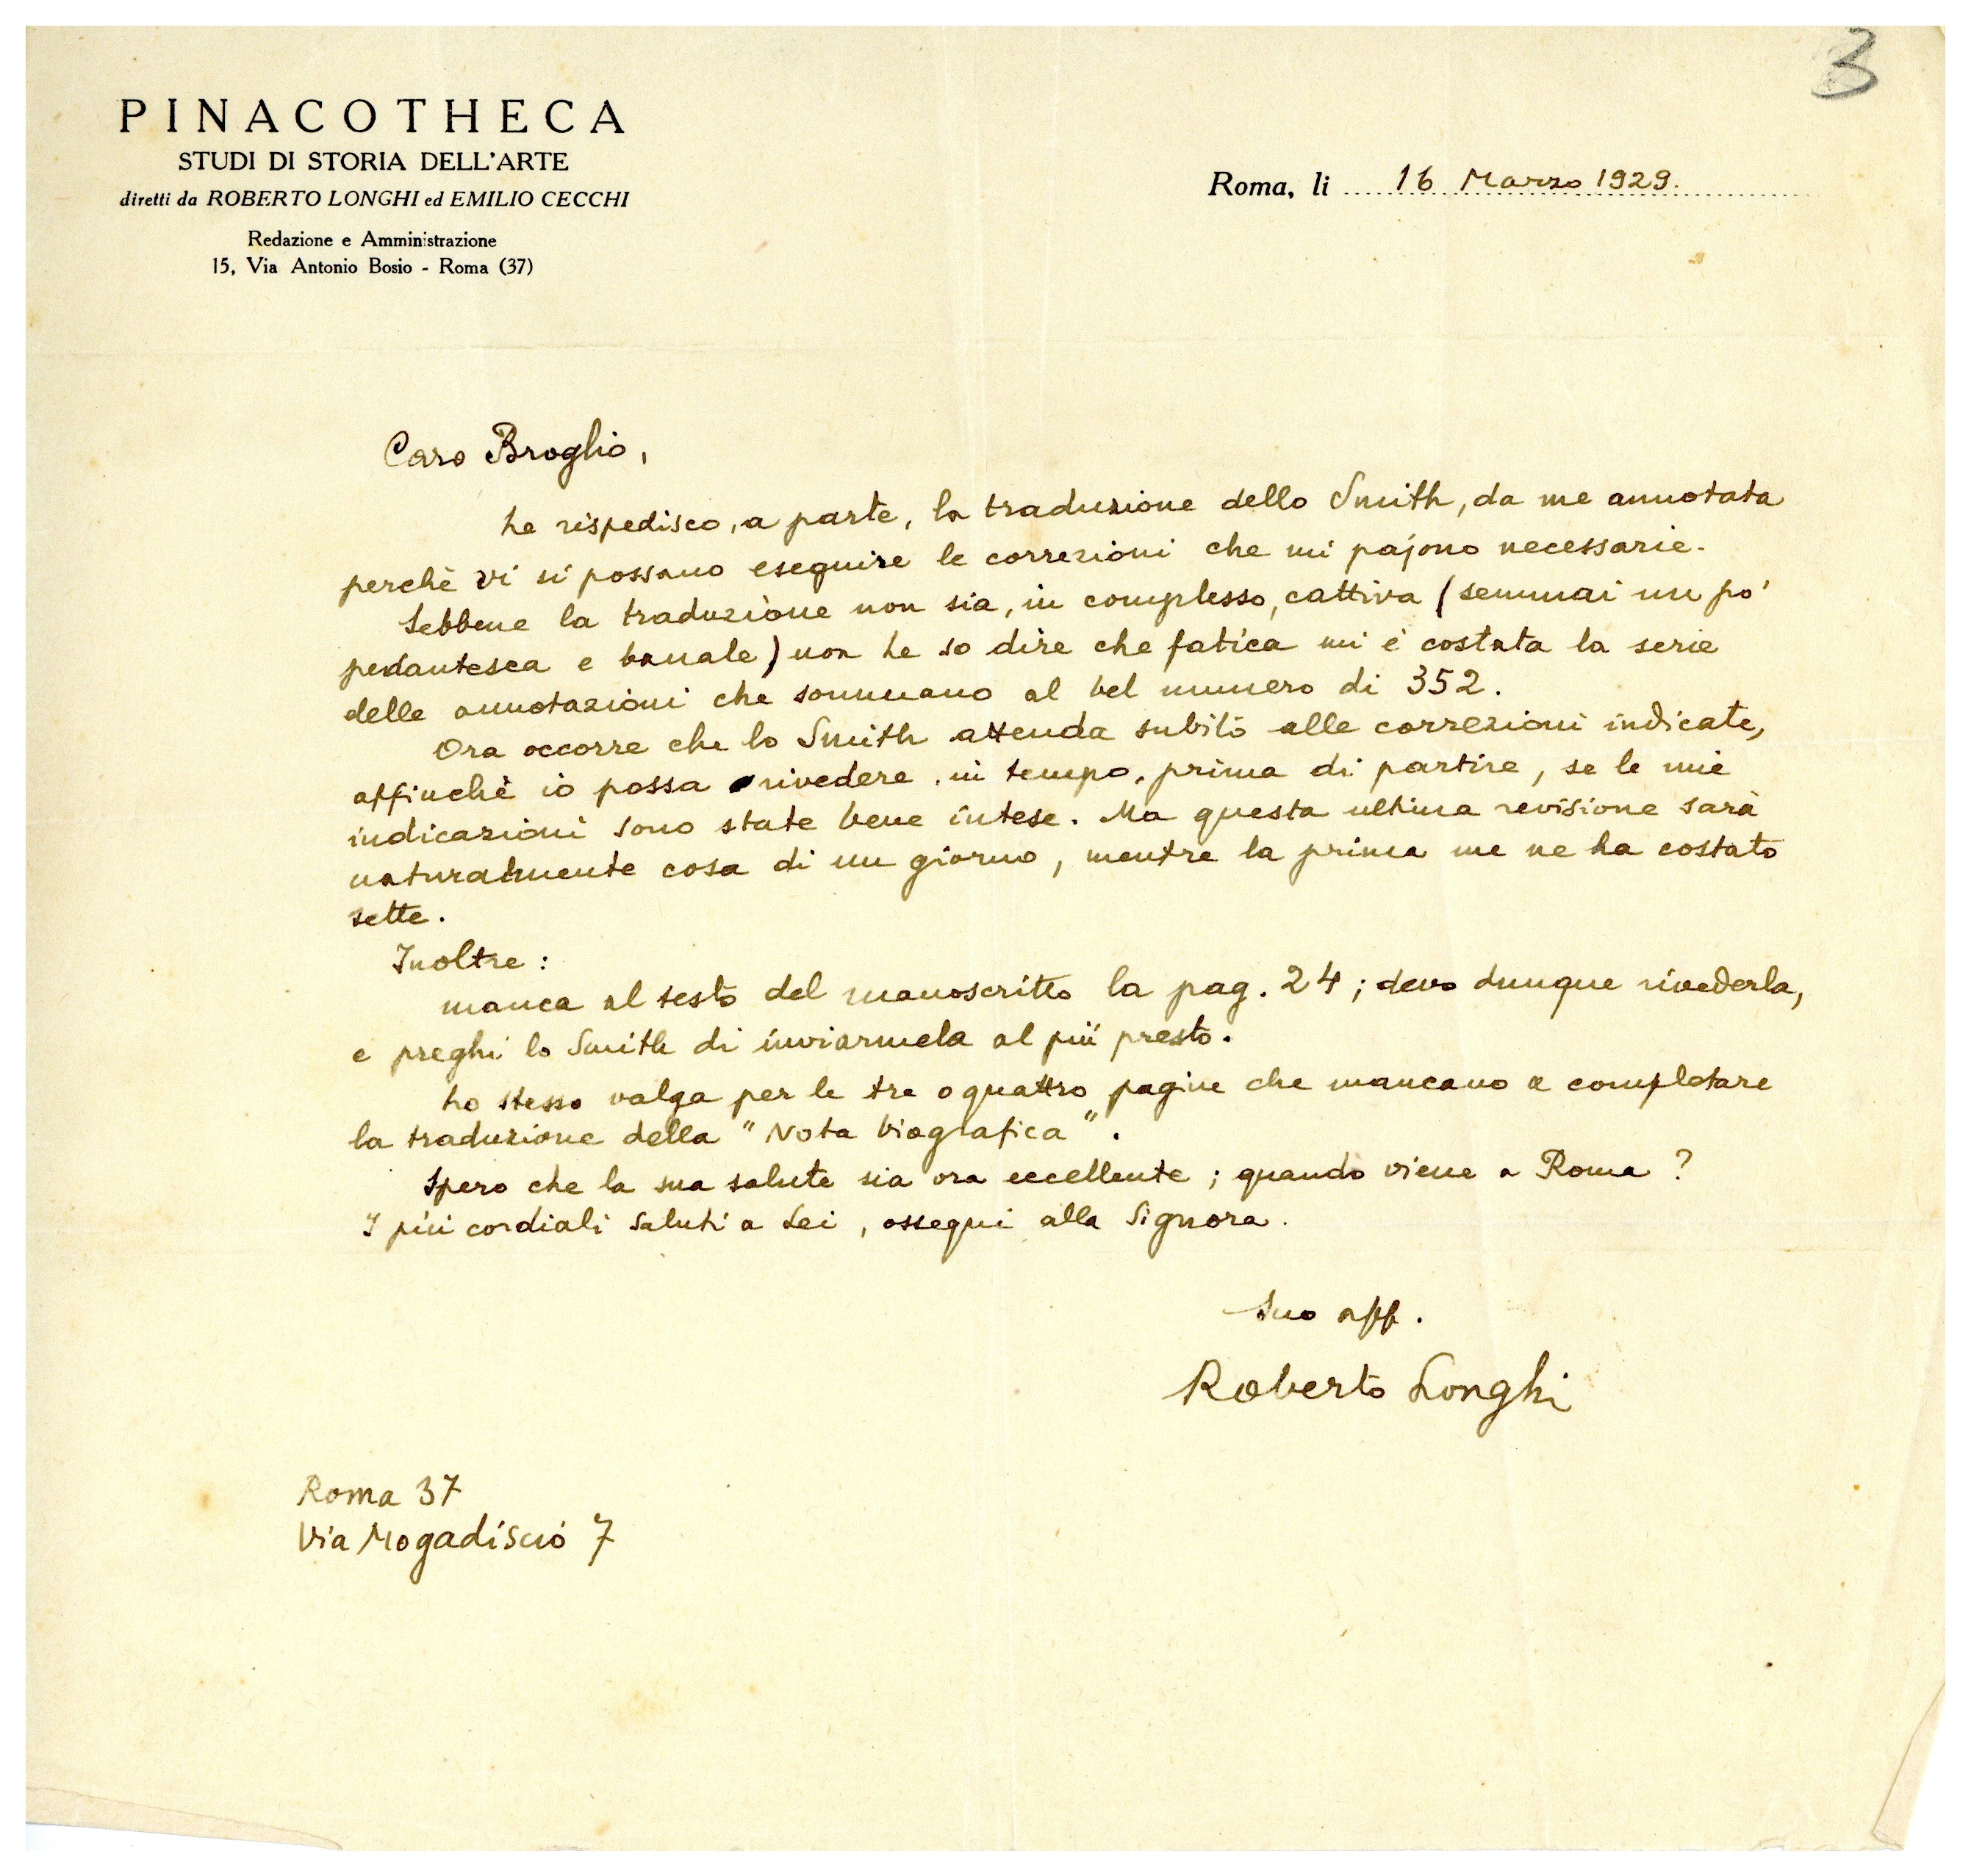 3
PINACOTHECA
STUDI DI STORIA DELL'ARTE
diretti da ROBERTO LONGHI ed EMILIO CECCHI
Redazione e Amministrazione
15, Via Antonio Bosio - Roma (37)
Roma, li 16 Marzo 1929.
Caro Broglio,
Le rispedisco, a parte, la traduzione dello Smith, da me annotata
perchè vi si possano eseguire le correzioni che mi pajono necessarie.
Sebbene la traduzione non sia, in complesso, cattiva (semmai un po'
pedantesca e banale) non Le so dire che fatica mi è costata la serie
delle annotazioni che sommano al bel numero di 352.
Ora occorre che lo Smith attenda subito alle correzioni indicate,
affinchè io possa rivedere, in tempo, prima di partire, se le mie
indicazioni sono state bene intese. Ma questa ultima revisione sarà
naturalmente cosa di un giorno, mentre la prima me ne ha costato
sette.
Inoltre:
manca al testo del manoscritto la pag. 24; devo dunque rivederla,
e preghi lo Smith di inviarmela al più presto.
Lo stesso valga per le tre o quattro pagine che mancano a completare
la traduzione della "Nota biografica".
Spero che la sua salute sia ora eccellente; quando viene a Roma?
I più cordiali saluti a Lei, ossequi alla Signora.
Suo aff.
Roberto Longhi
Roma 37
Via Mogadiscio 7